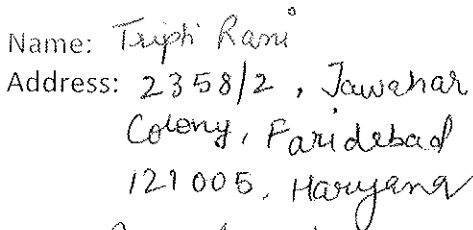 Name: Tripti Rani
Address: 2358/2, Jawahar
Colony, Faridabad
121005, Haryana